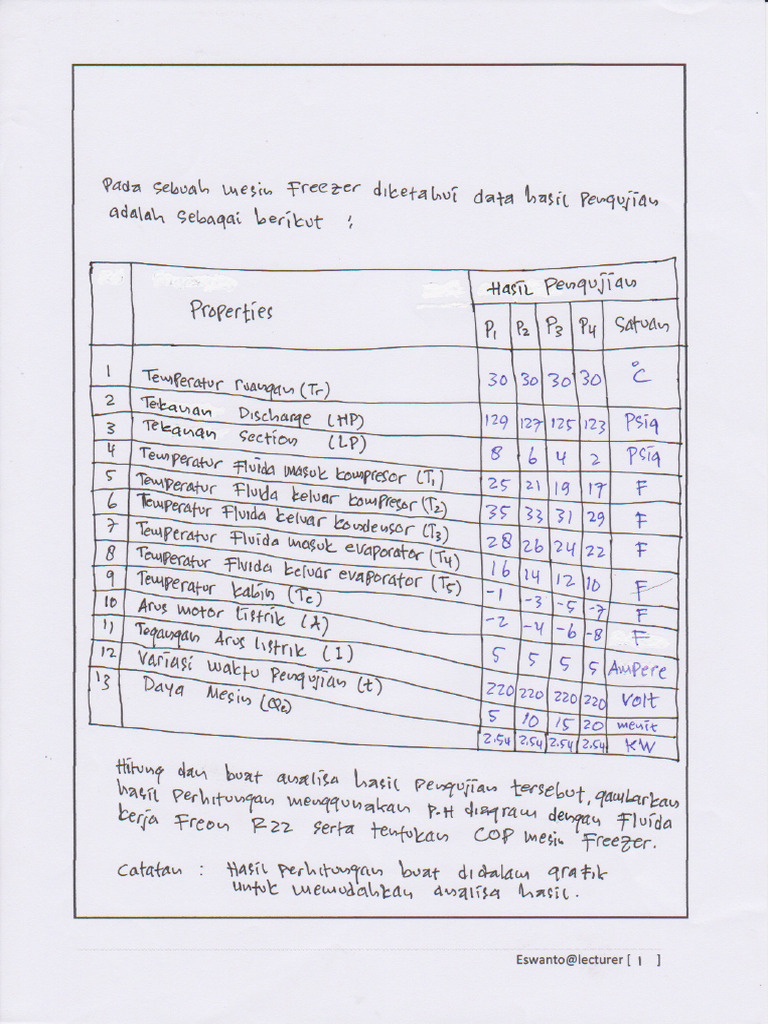 Pada sebuah mesin Freezer diketahui data hasil Pengujian
adalah sebagai berikut :
Properties
Hasil Pengujian
P1 P2 P3 P4 Satuan
1 Temperatur ruangan (Tr) 30 30 30 30 °C
2 Tekanan Discharge (HP) 129 127 125 123 Psig
3 Tekanan Section (LP) 8 6 4 2 Psig
4 Temperatur Fluida masuk kompresor (T1) 25 21 19 17 F
5 Temperatur Fluida keluar kompresor (T2) 35 33 31 29 F
6 Temperatur Fluida keluar kondensor (T3) 28 26 24 22 F
7 Temperatur Fluida masuk evaporator (T4) 16 14 12 10 F
8 Temperatur Fluida keluar evaporator (T5) -1 -3 -5 -7 F
9 Temperatur kabin (Tc) -2 -4 -6 -8 F
10 Arus motor listrik (A) 5 5 5 5 Ampere
11 Tegangan Arus listrik (I) 220 220 220 220 Volt
12 Variasi waktu Pengujian (t) 5 10 15 20 menit
13 Daya Mesin (Qe) 2.54 2.54 2.54 2.54 KW
Hitung dan buat analisa hasil pengujian tersebut, gambarkan
hasil perhitungan menggunakan P-H diagram dengan Fluida
kerja Freon R22 serta tentukan COP mesin Freezer.
Catatan : Hasil perhitungan buat didalam grafik
untuk memudahkan analisa hasil.
Eswanto@lecturer [ 1 ]